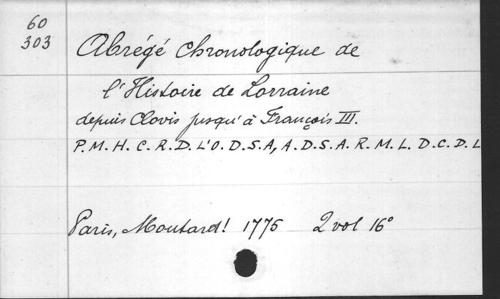 60
303
Abrégé chronologique de
l'Histoire de Lorraine
depuis Clovis jusqu'à François III.
P.M.H.C.R.D.L'O.D.S.A, A.D.S.A.R.M.L.D.C.D.L
Paris, Moutard! 1775 2 vol 16°